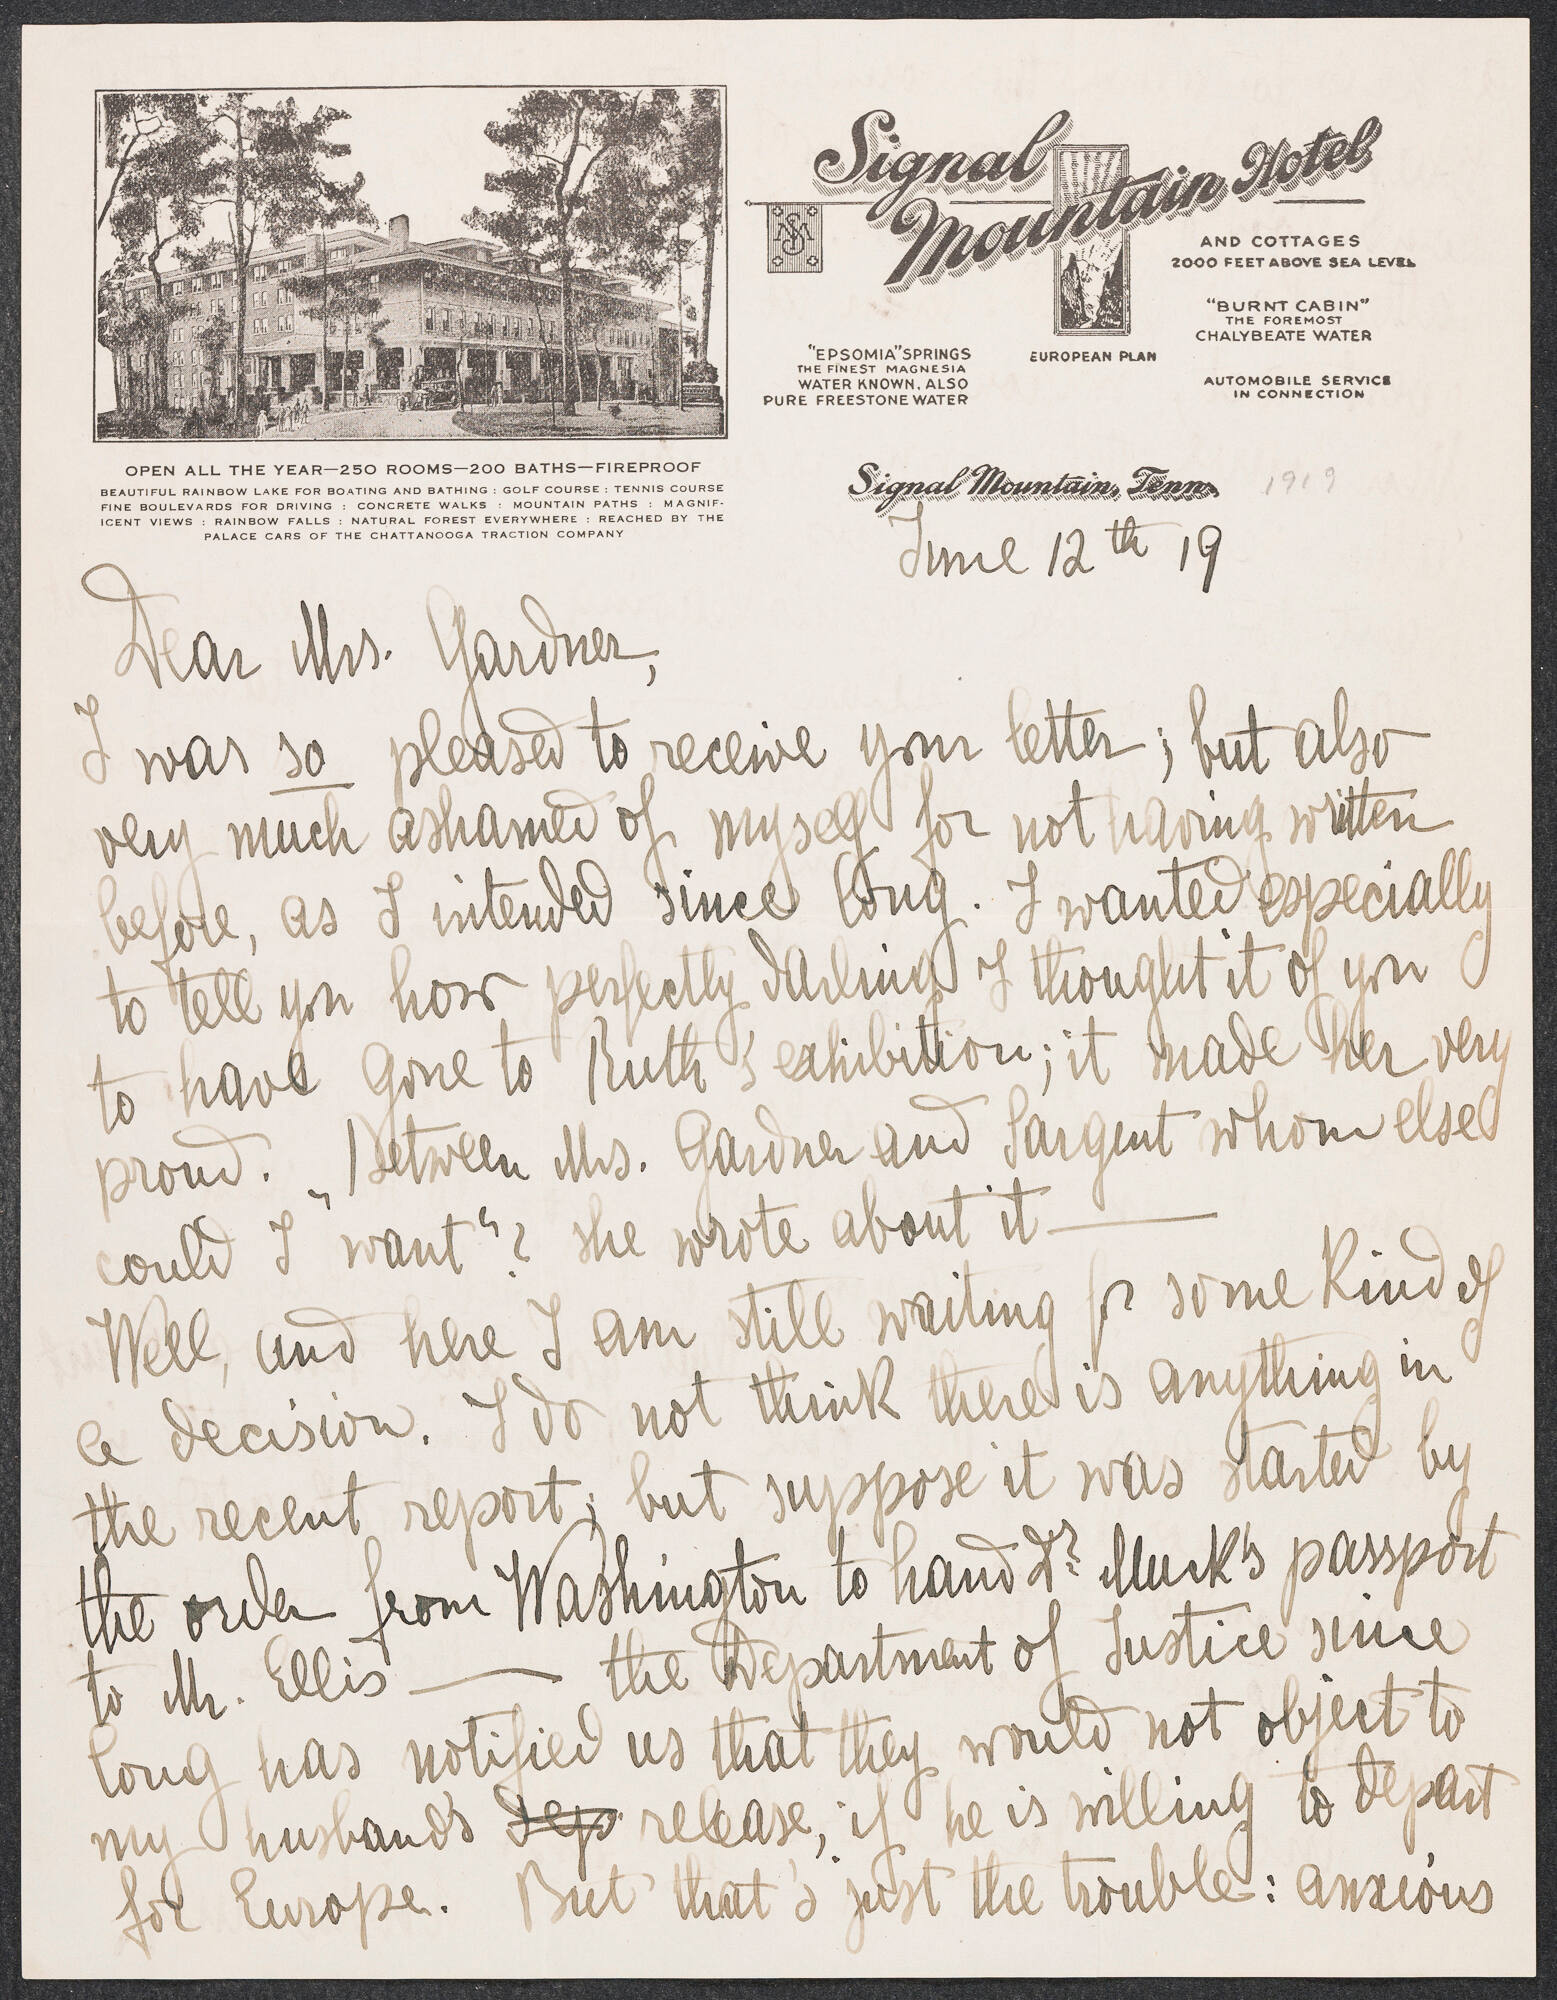 Signal
Mountain Hotel
SM
AND COTTAGES
2000 FEET ABOVE SEA LEVEL
"BURNT CABIN"
THE FOREMOST
CHALYBEATE WATER
"EPSOMIA" SPRINGS
THE FINEST MAGNESIA
WATER KNOWN, ALSO
PURE FREESTONE WATER
EUROPEAN PLAN
AUTOMOBILE SERVICE
IN CONNECTION
OPEN ALL THE YEAR—250 ROOMS—200 BATHS—FIREPROOF
BEAUTIFUL RAINBOW LAKE FOR BOATING AND BATHING : GOLF COURSE : TENNIS COURSE
FINE BOULEVARDS FOR DRIVING : CONCRETE WALKS : MOUNTAIN PATHS : MAGNIF-
ICENT VIEWS : RAINBOW FALLS : NATURAL FOREST EVERYWHERE : REACHED BY THE
PALACE CARS OF THE CHATTANOOGA TRACTION COMPANY
Signal Mountain, Tenn. 1919
June 12th 19
Dear Mrs. Gardner,
I was so pleased to receive your letter; but also
very much ashamed of myself for not having written
before, as I intended since long. I wanted especially
to tell you how perfectly darling I thought it of you
to have gone to Ruth's exhibition; it made her very
proud. "Between Mrs. Gardner and Sargent whom else
could I "want"? she wrote about it —
Well, and here I am still waiting for some kind of
a decision. I do not think there is anything in
the recent report; but suppose it was started by
the order from Washington to hand Dr. Muck's passport
to Mr. Ellis — the Department of Justice since
long has notified us that they would not object to
my husband's Dep release, if he is willing to depart
for Europe. But that's just the trouble: anxious